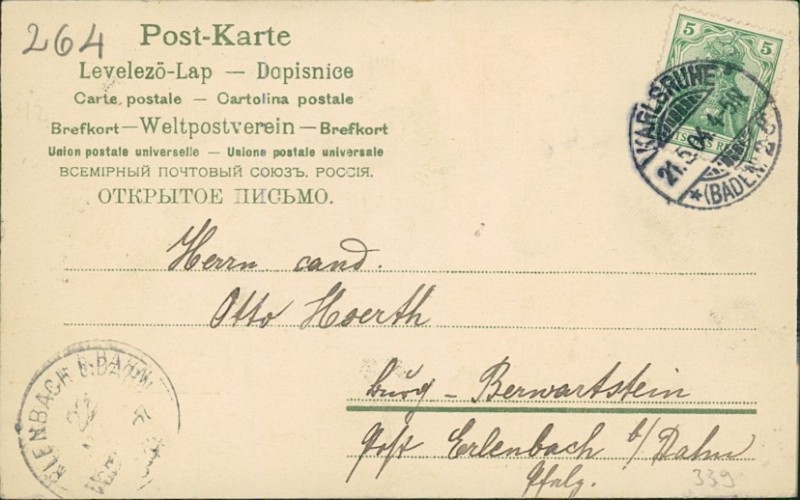 264
Post-Karte
Levelező-Lap — Dopisnice
Carte postale — Cartolina postale
Brefkort — Weltpostverein — Brefkort
Union postale universelle — Unione postale universale
ВСЕМІРНЫЙ ПОЧТОВЫЙ СОЮЗЪ. РОССІЯ.
ОТКРЫТОЕ ПИСЬМО.
5 5
KARLSRUHE
21.5.04. 4-5N
*(BADEN) 2
Herrn cand.
Otto Hoerth
Burg - Berwartstein
Post Erlenbach b/ Dahn
Pfalz.
339
ERLENBACH B. DAHN